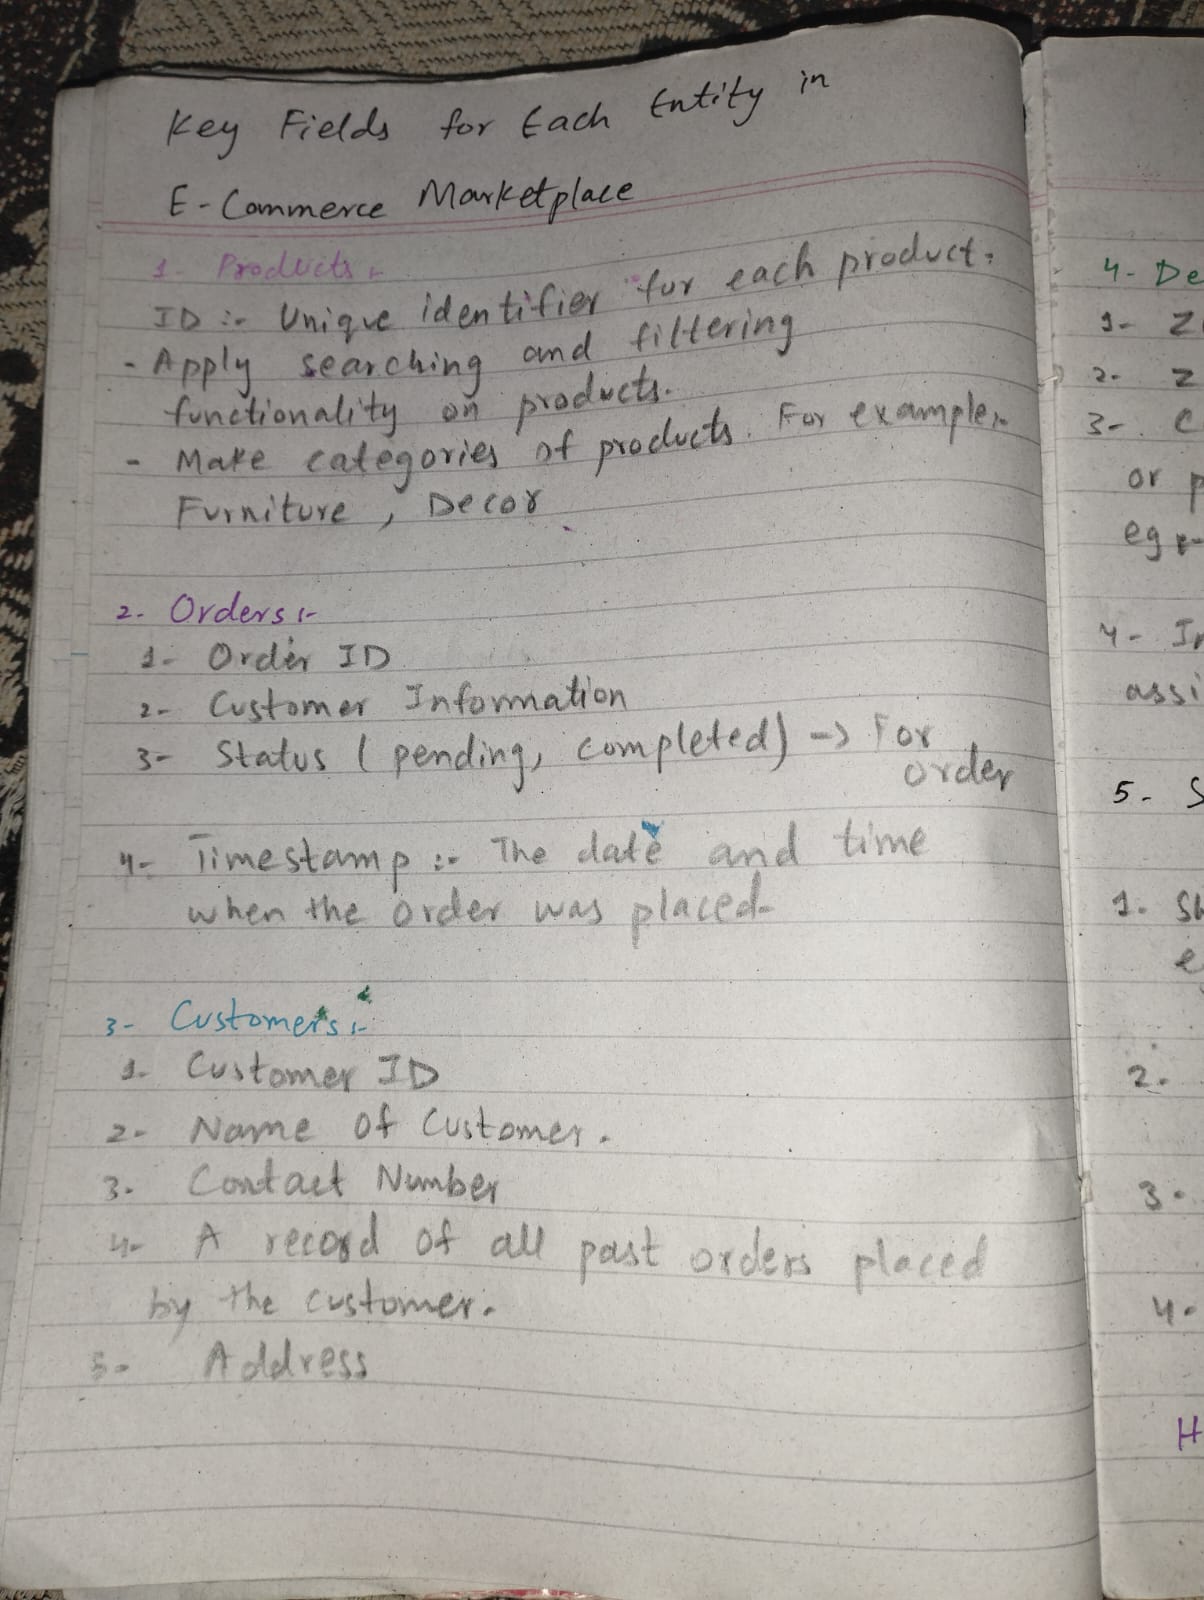 Key Fields for Each Entity in
E-Commerce Marketplace
1- Products :-
ID :- Unique identifier for each product.
- Apply searching and filtering
functionality on products.
- Make categories of products. For example :-
Furniture, Decor
2- Orders :-
1- Order ID
2- Customer Information
3- Status (pending, completed) -> For
order
4- Timestamp :- The date and time
when the order was placed-
3- Customers :-
1- Customer ID
2- Name of Customer.
3- Contact Number
4- A record of all past orders placed
by the customer.
5- Address
4- De
1- Z
2- Z
3- C
or p
eg :-
4- In
assi
5- S
1- Sh
e
2.
3.
4.
H